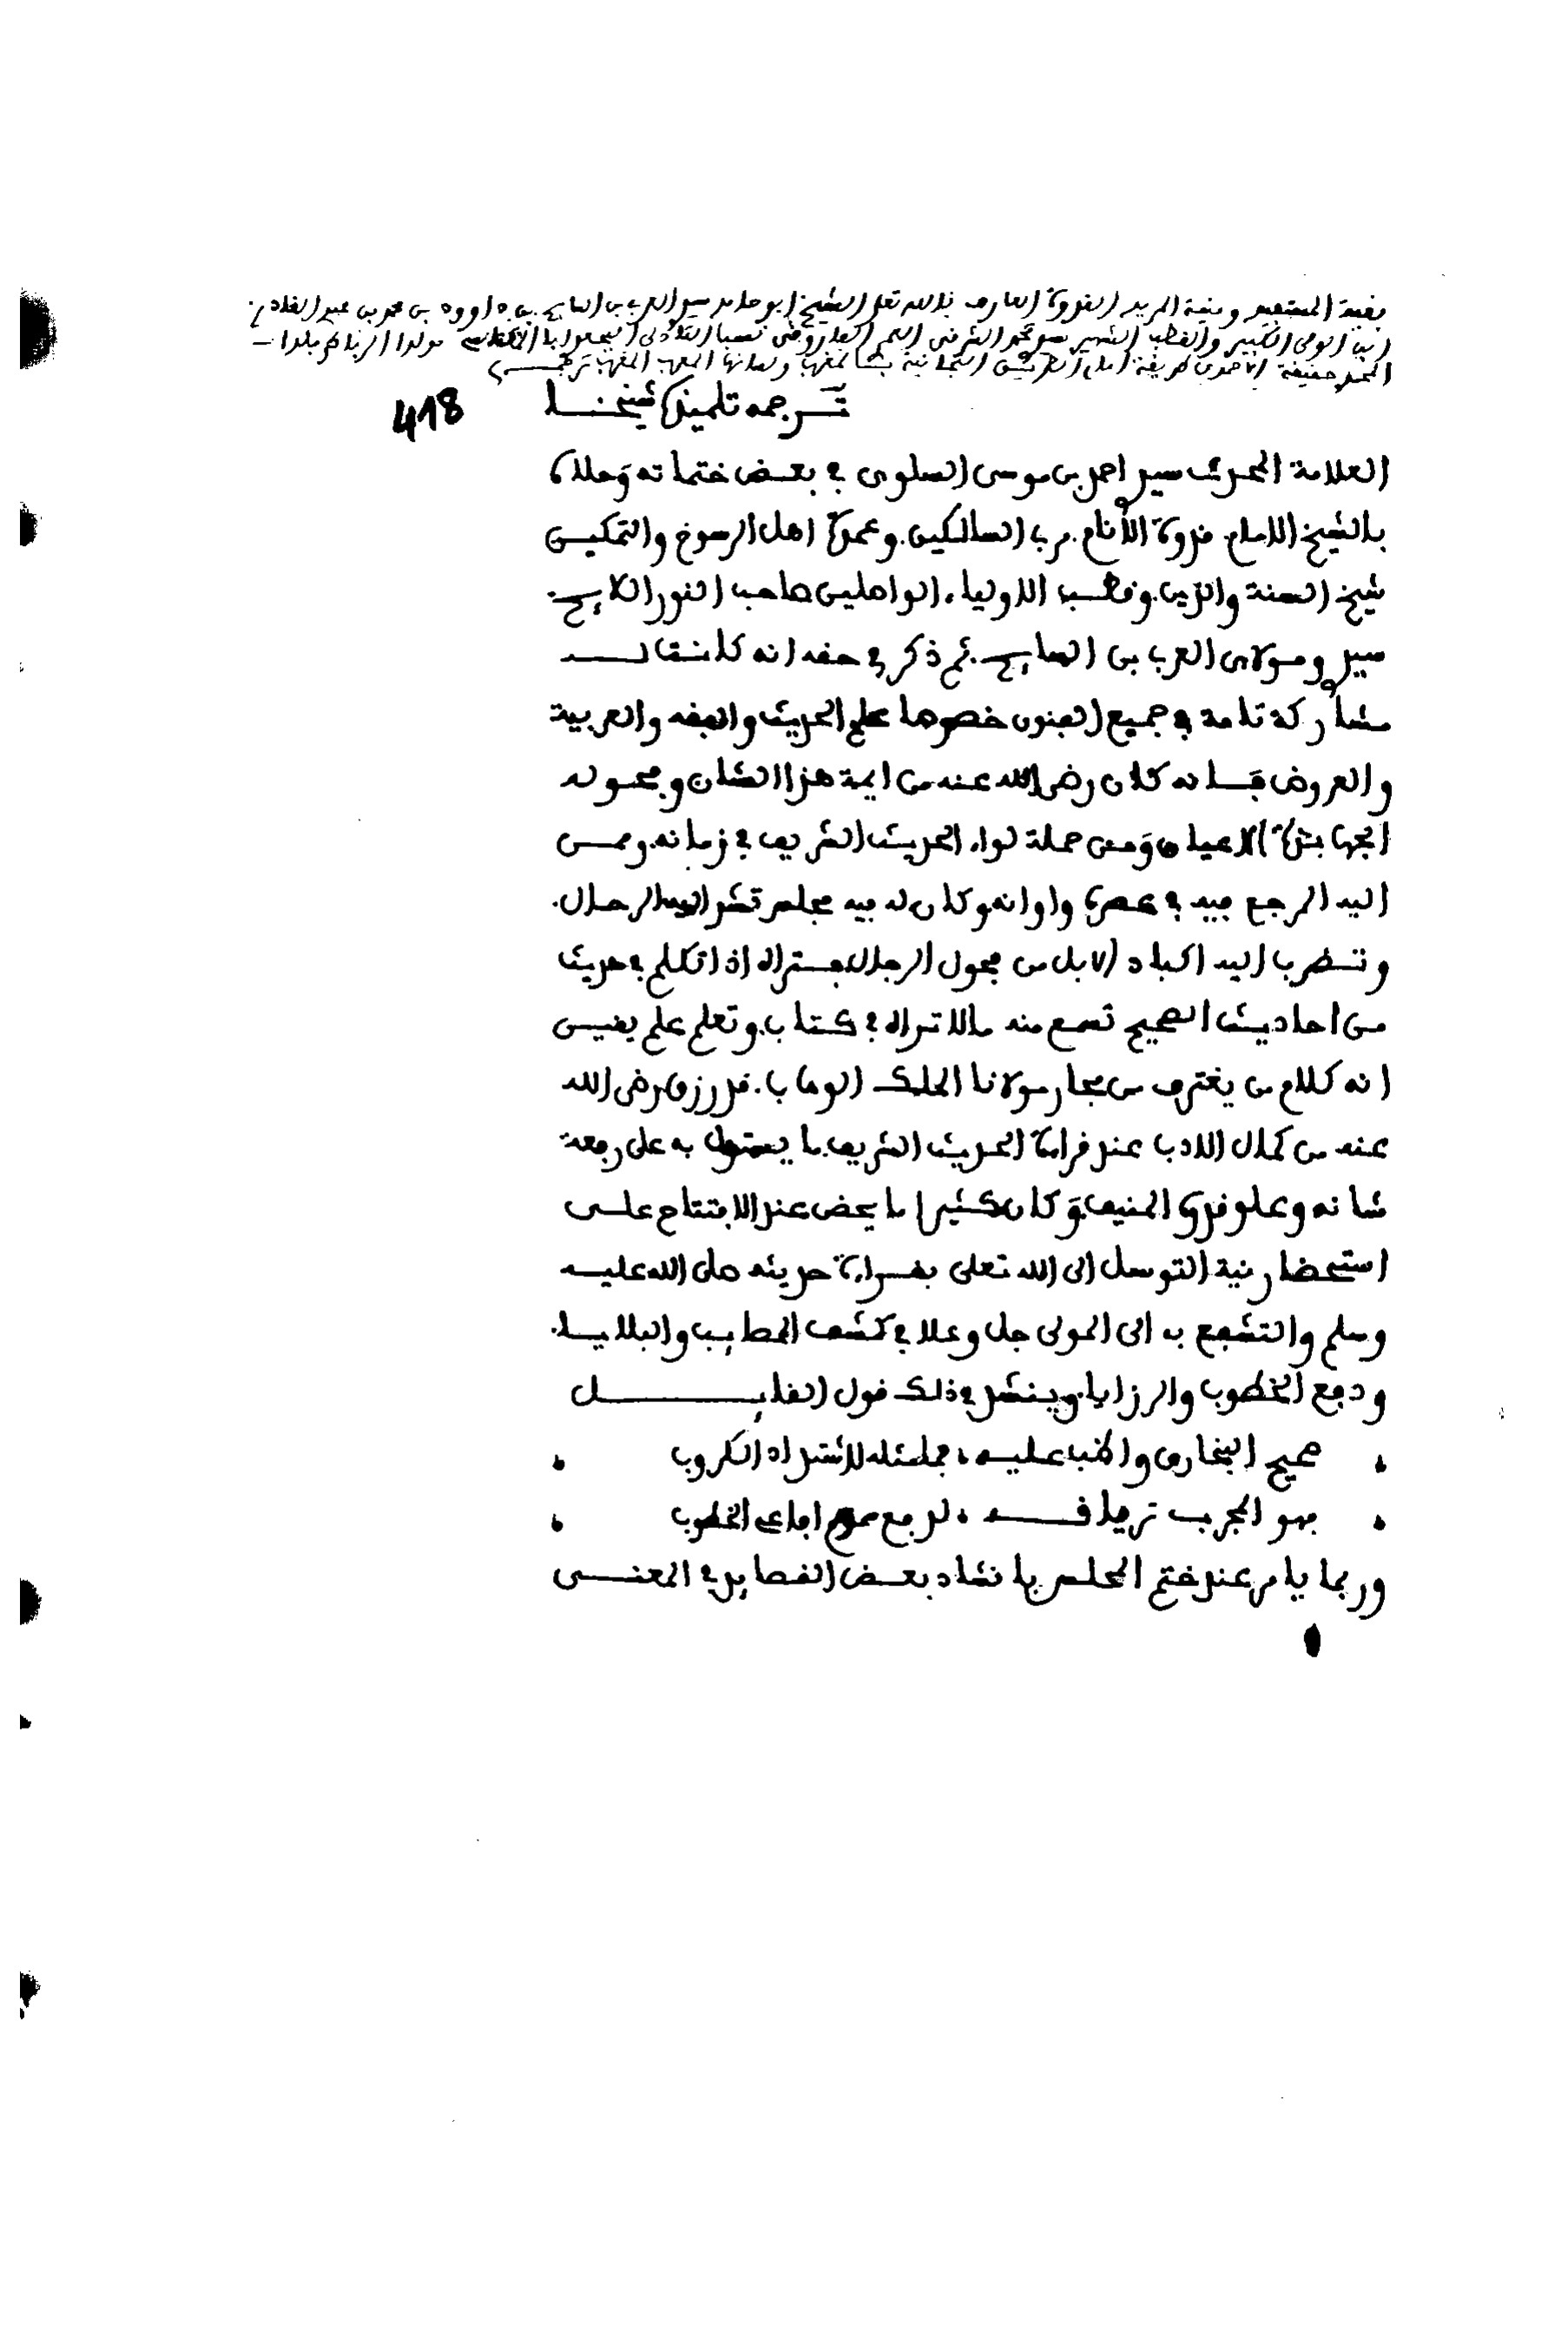 بغية المستفيد ومنية المريد القدوة العارف بالله تعلى الشيخ ابو حامد سيدي العربي بن السايح بن داوود بن محمد بن عبد القادر
ابن الولي الكبير والقطب الشهير سيدي محمد الشرقي العمري الفاروقي نسبا التادلي البجعدي ابا المكناسي مولدا الرباطي بلدا
المحمدي حقيقة الاحمدي طريقة التجانية
تـرجمه تلميذه شيخنـا
418
العلامة المحدث سيدي احمد بن موسى السلوي في بعض ختماته وحلاه
بالشيخ الامام. قدوة الأنام. مربي السالكين. وعمدة اهل الرسوخ والتمكين
شيخ السنة والدين. وقطب الاولياء الواصلين صاحب النور اللايح.
سيدي ومولاي العربي بن السايح. ثم ذكر في حقه انه كانت لـه
مشاركة تامة في جميع الفنون خصوصا علم الحديث والفقه والعربية
والعروض فـانه كان رضي الله عنه من ايمة هذا الشان وفحوله
الجهابذة الاعيان ومن حملة لواء الحديث الشريف في زمانه. وممـن
اليه المرجع فيه في عصره واوانه. وكان له فيه مجلس تشد اليه الرحال.
وتـضرب اليه اكباد الابل من فحول الرجال. فتراه اذا تكلم في حديث
من احاديث الصحيح تسمع منه ما لا تراه في كتاب. وتعلم علم يقيـن
انه كلام من يغترف من بحار مولانا الملك الوهاب. قد رزق رضي الله
عنه من كمال الادب عند قراءة الحديث الشريف. ما يستدل به على رفعة
شانه وعلو قدره المنيف. وكان كثيرا ما يحض عند الافتتاح علـى
استحضار نية التوسل الى الله تعلى بقـراءة حديثه صلى الله عليه
وسلم والتشفع به الى المولى جل وعلا في كشف المصايب والبلايـا.
ودفع الخطوب والرزايا. وينشد في ذلك قول القايـل
صحيح البخاري واكب عليه، فما مثله لاشتداد الكروب
فهو المجرب ترياقـه، لدفع سموم افاعي الخطوب
وربما يامر عند ختم المجلس بانشاد بعـض القصايد في المعنـى